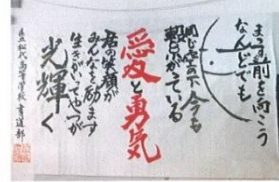 まっすぐ前を向こう
なんどでも
同じ空の下 今も
繋がっている
愛と勇気
君の笑顔が
みんなを励ます
生きがいってやつが
光輝く
松代高等学校書道部